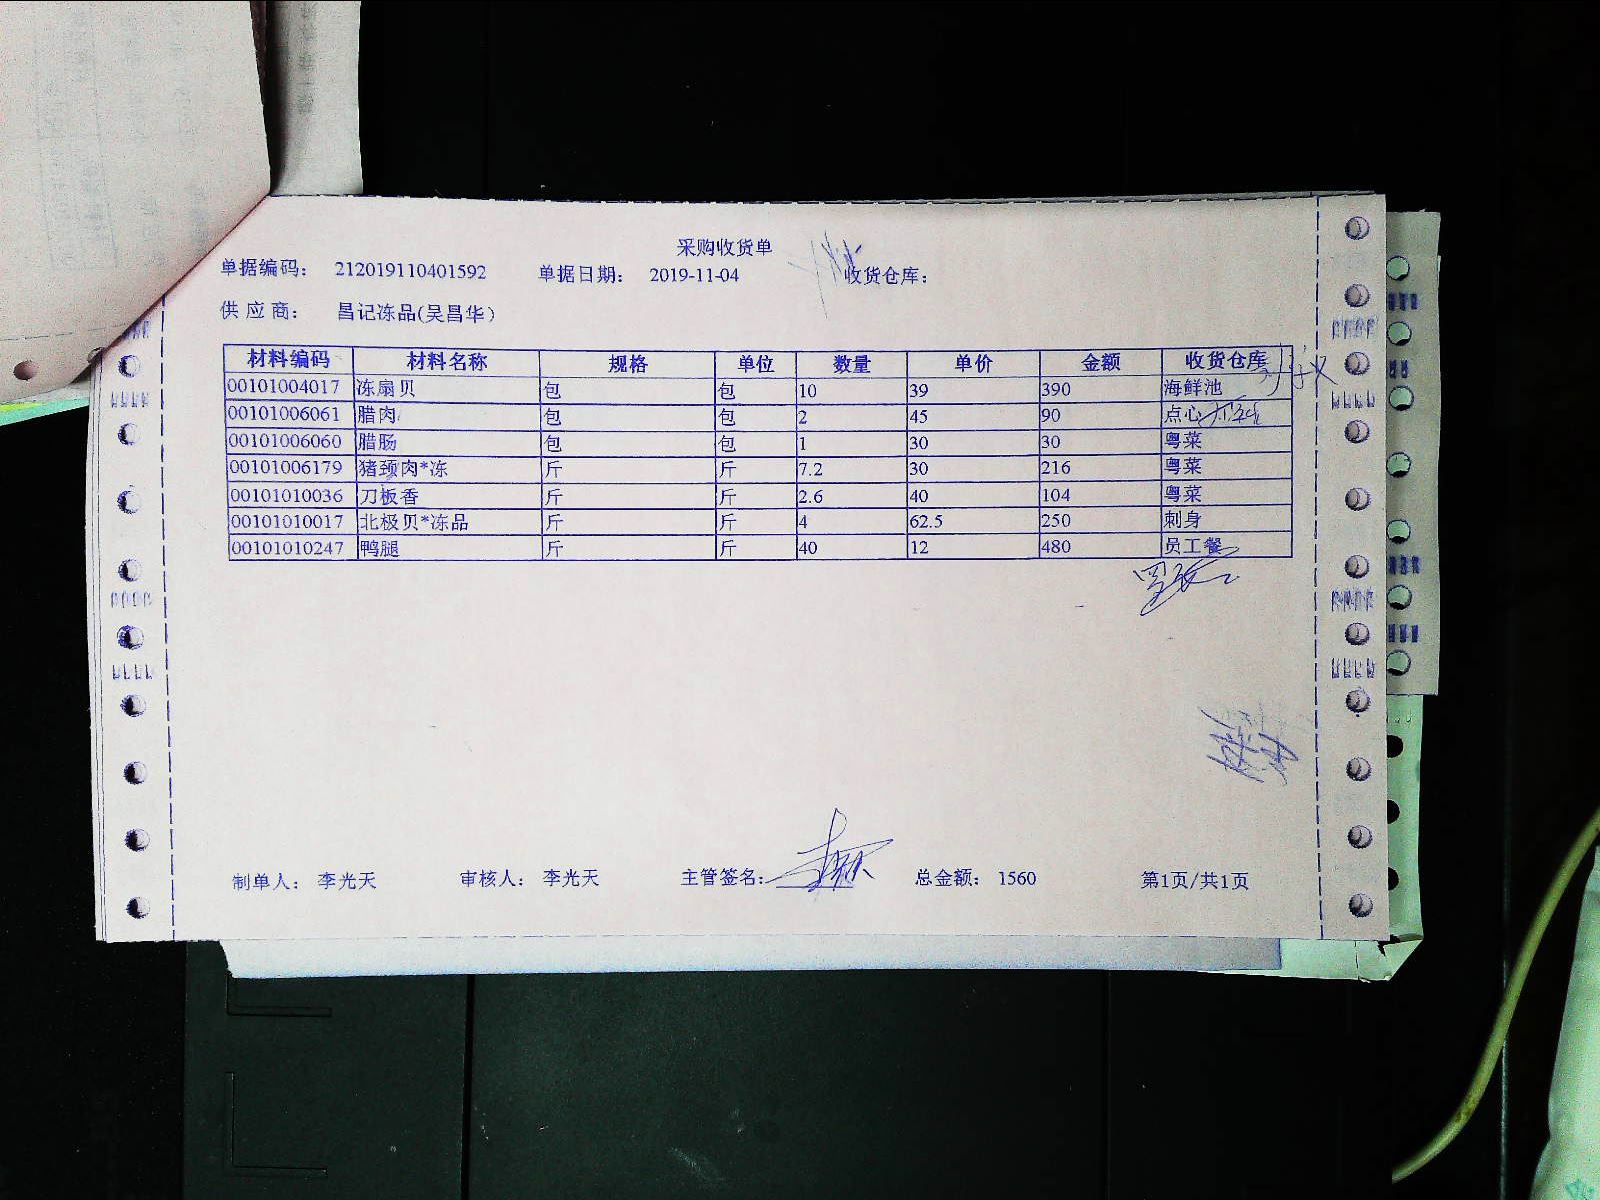 采购收货单
单据编码： 212019110401592 单据日期： 2019-11-04 收货仓库：
供 应 商： 昌记冻品(吴昌华)
材料编码 材料名称 规格 单位 数量 单价 金额 收货仓库
00101004017 冻扇贝 包 包 10 39 390 海鲜池
00101006061 腊肉 包 包 2 45 90 点心
00101006060 腊肠 包 包 1 30 30 粤菜
00101006179 猪颈肉*冻 斤 斤 7.2 30 216 粤菜
00101010036 刀板香 斤 斤 2.6 40 104 粤菜
00101010017 北极贝*冻品 斤 斤 4 62.5 250 刺身
00101010247 鸭腿 斤 斤 40 12 480 员工餐
制单人： 李光天 审核人： 李光天 主管签名： 总金额： 1560 第1页/共1页